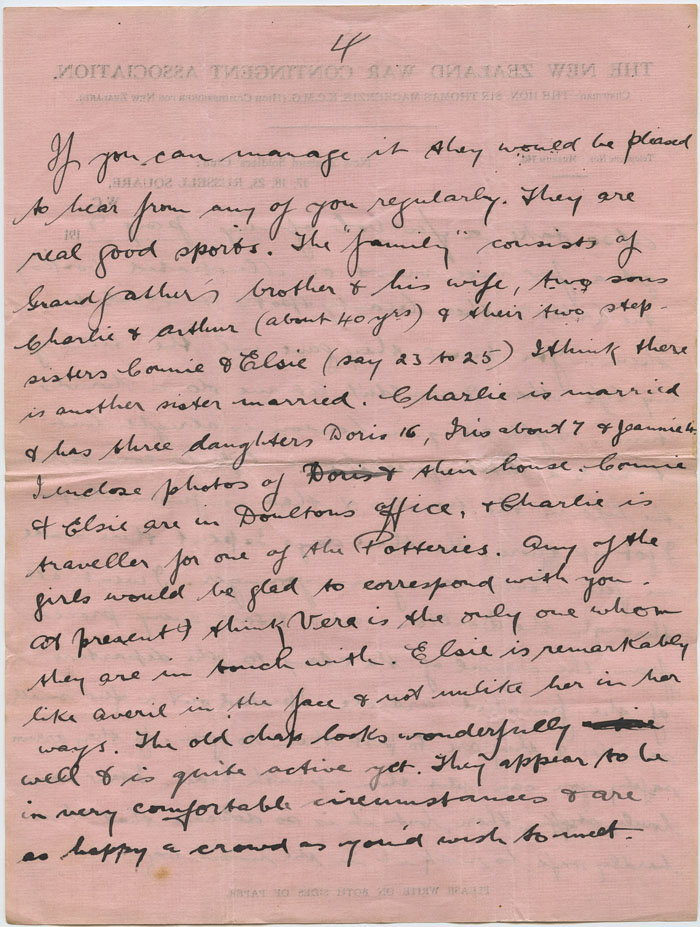 4
If you can manage it they would be pleased
to hear from any of you regularly. They are
real good sports. The "family" consists of
Grandfather's brother & his wife, two sons
Charlie & Arthur (about 40 yrs) & their two step-
sisters Connie & Elsie (say 23 to 25) I think there
is another sister married. Charlie is married
& has three daughters Doris 16, Iris about 7 & Jeannie 4.
I enclose photos of Doris & their house. Connie
& Elsie are in Doultons office, & Charlie is
traveller for one of the Potteries. Any of the
girls would be glad to correspond with you.
At present I think Vera is the only one whom
they are in touch with. Elsie is remarkably
like Averil in the face & not unlike her in her
ways. The old chap looks wonderfully
well & is quite active yet. They appear to be
in very comfortable circumstances & are
as happy a crowd as you'd wish to meet.
THE NEW ZEALAND WAR CONTINGENT ASSOCIATION.
CHAIRMAN—THE HON. SIR THOMAS MACKENZIE, K.C.M.G. (HIGH COMMISSIONER FOR NEW ZEALAND).
RUSSELL SQUARE,
W.C.
191
PLEASE WRITE ON BOTH SIDES OF PAPER